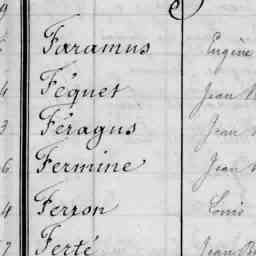 Faramus Eugène
Féquet Jean
Féragus Jean
Fermine Jean
Ferron Louis
Ferté Jean